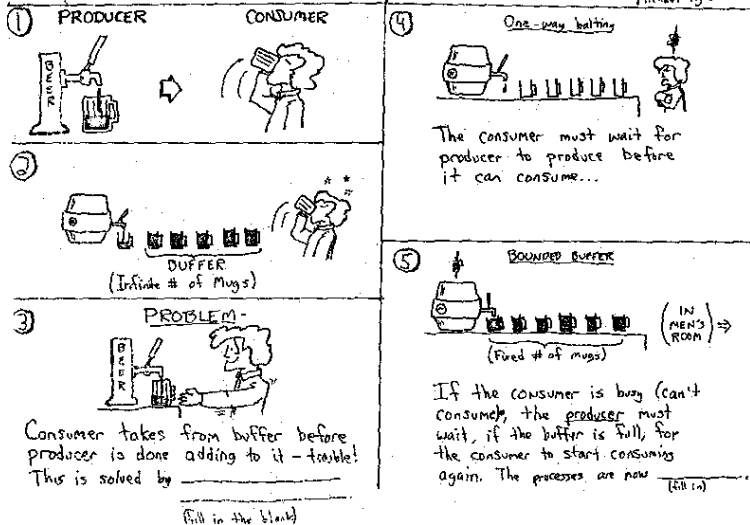 ① PRODUCER CONSUMER
BEER
②
BUFFER
(Infinite # of Mugs)
③ PROBLEM-
BEER
Consumer takes from buffer before
producer is done adding to it - trouble!
This is solved by
(fill in the blank)
④ One-way halting
The consumer must wait for
producer to produce before
it can consume...
⑤ BOUNDED BUFFER
(IN
MEN'S
ROOM) ⇒
(Fixed # of mugs)
If the consumer is busy (can't
consume), the producer must
wait, if the buffer is full, for
the consumer to start consuming
again. The processes are now
(fill in)